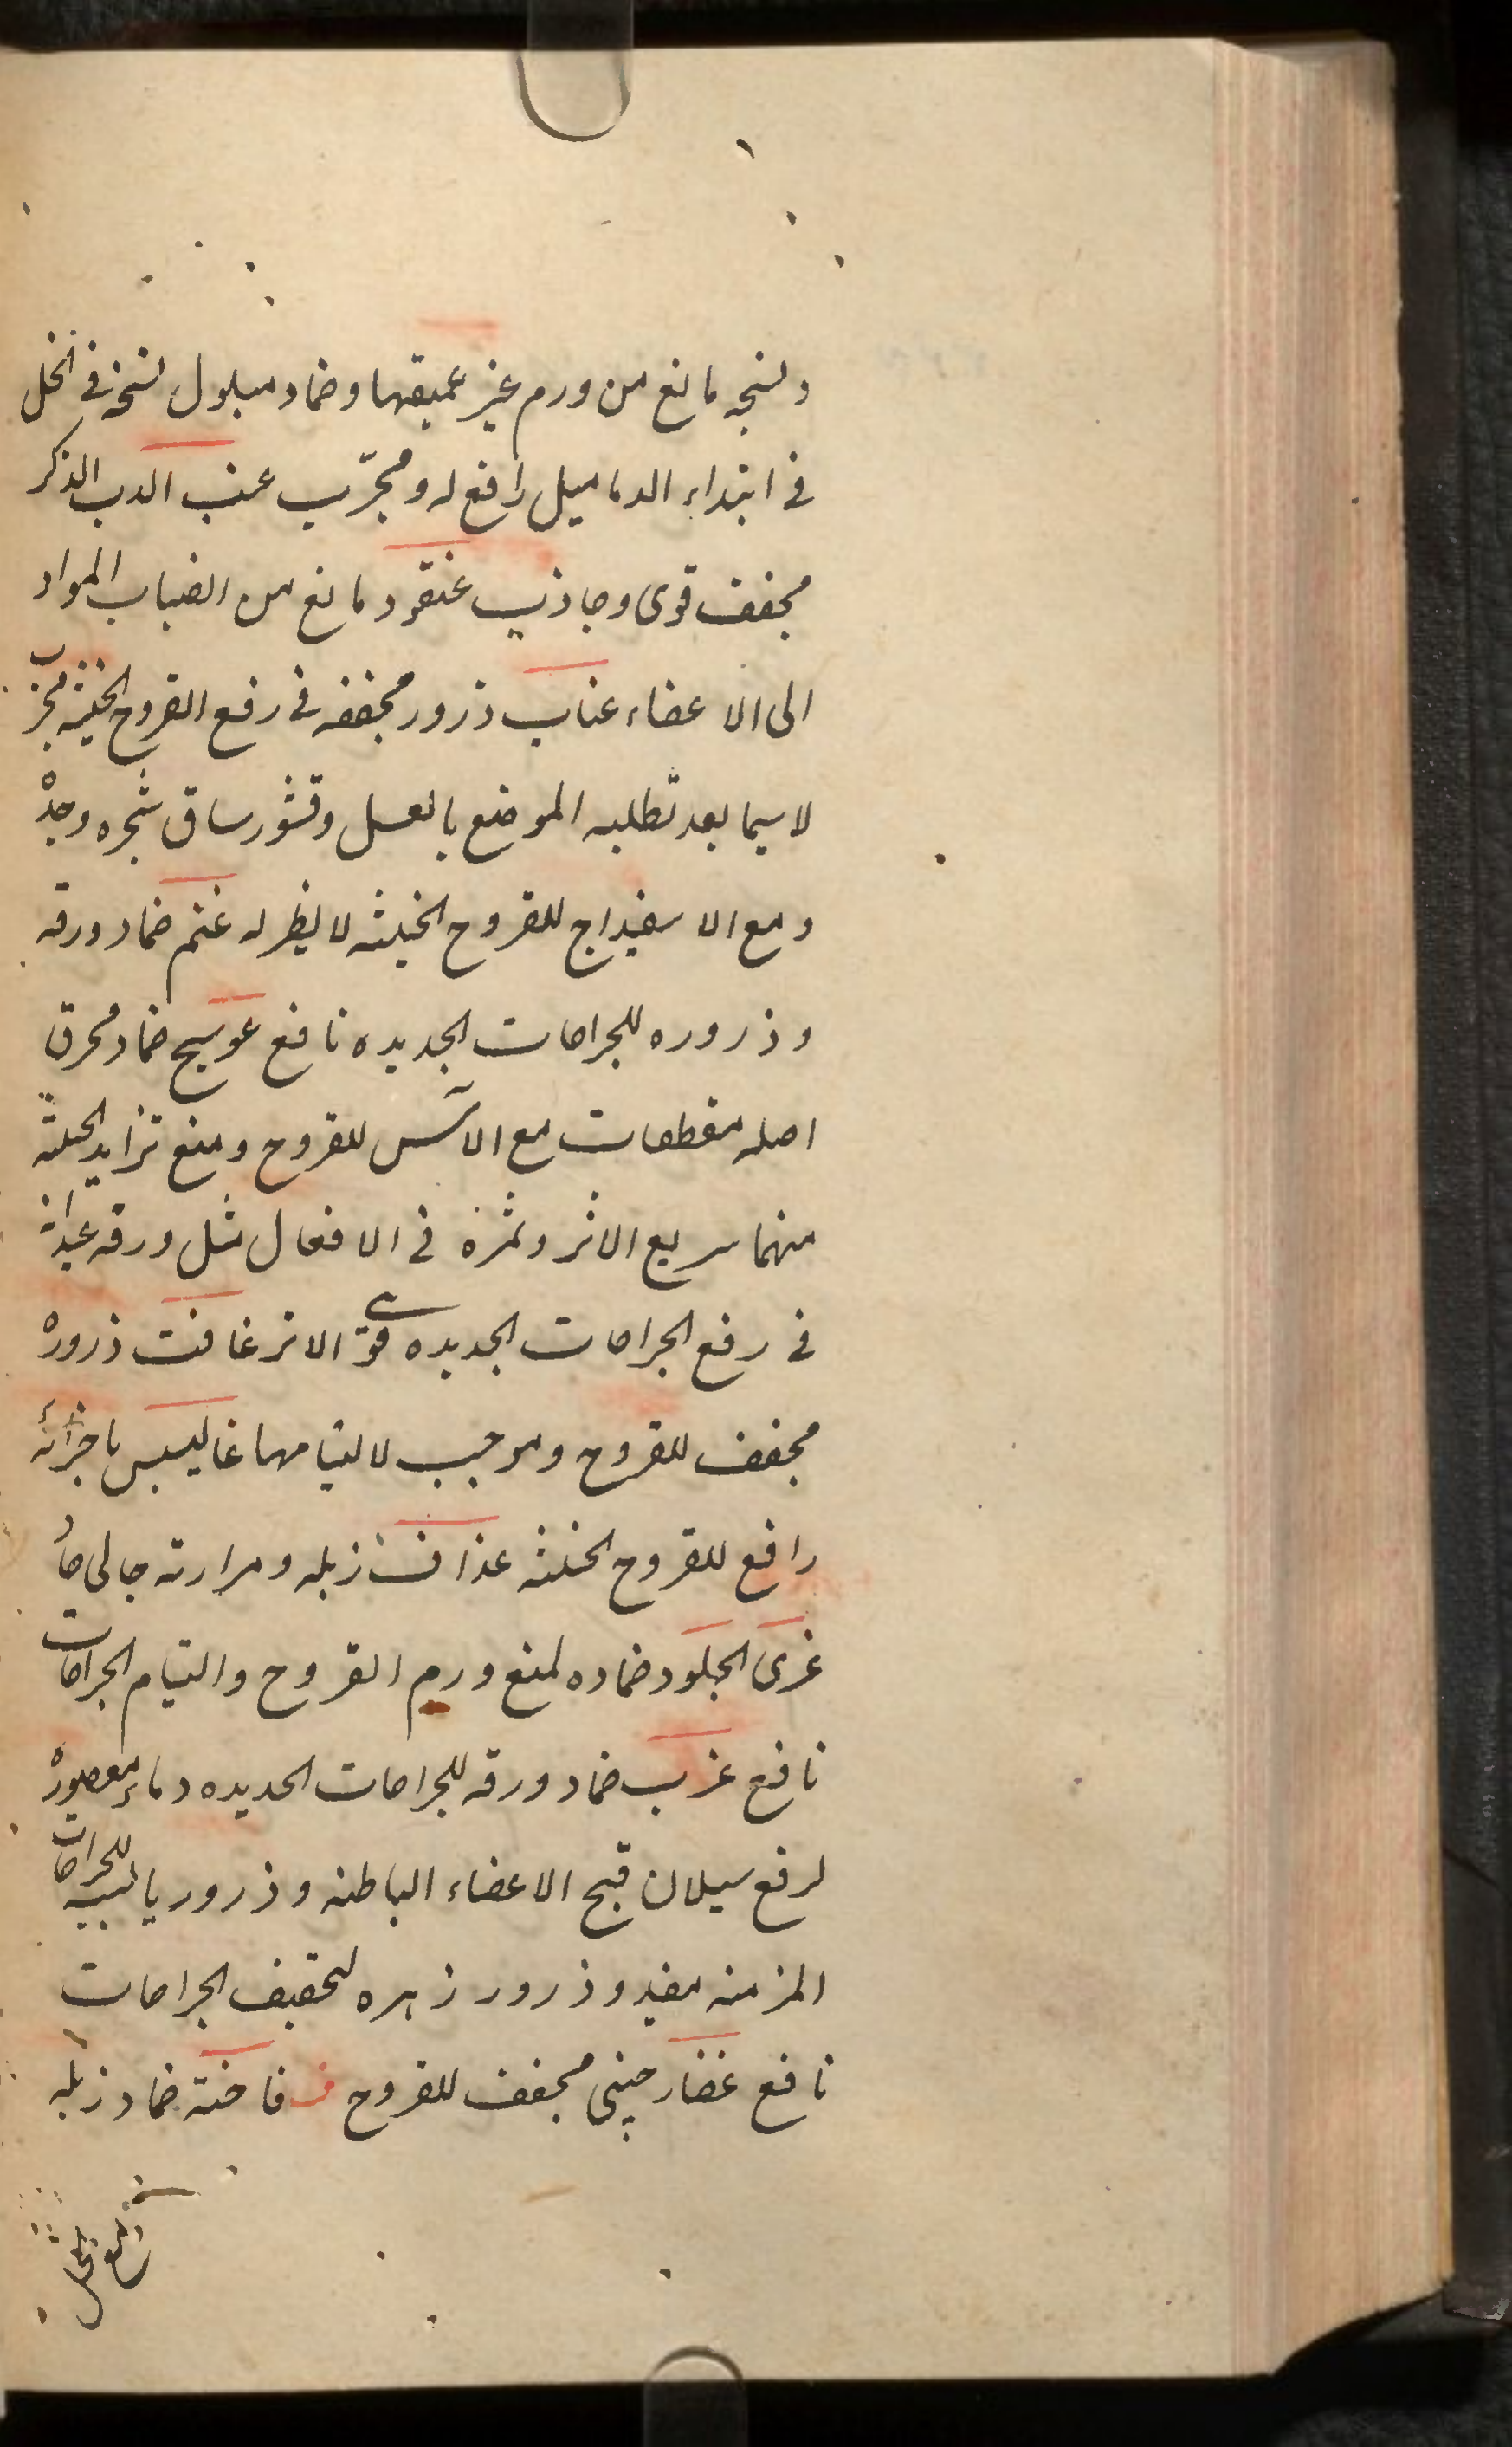 ونسجه مانع من ورم غير عميقها وضماد مبلول نسجه فی الخل
فی ابتداء الدمامیل رافع له ومجرّب عنب الدب الذکر
مجفف قوی وجاذب عنقود مانع من انصباب المواد
الی الاعضاء عناب ذرور مجففه فی رفع القروح الخبیثه مجرب
لاسیما بعد تطلیه الموضع بالعسل وقشور ساق شجره وحده
ومع الاسفیداج للقروح الخبیثه لا نظیر له غنم ضماد ورقه
وذروره للجراحات الجدیده نافع عوسج ضماد محرق
اصله مقطعات مع الآس للقروح ومنع تزاید الخبیثه
منها سریع الاثر وثمره فی الافعال مثل ورقه
فی رفع الجراحات الجدیده قوی الاثر غافت ذروره
مجفف للقروح وموجب لالتیامها غالیبس باجزائه
رافع للقروح الخبیثه غداف زبله ومرارته جالی حاد
غری الجلود ضماده لمنع ورم القروح والتیام الجراحات
نافع غرب ضماد ورقه للجراحات الجدیده وماء معصوره
لرفع سیلان قیح الاعضاء الباطنه وذرور یابسه للجراحات
المزمنه مفید وذرور زهره لتجفیف الجراحات
نافع غضار چینی مجفف للقروح ف فاخته ضماد زبله